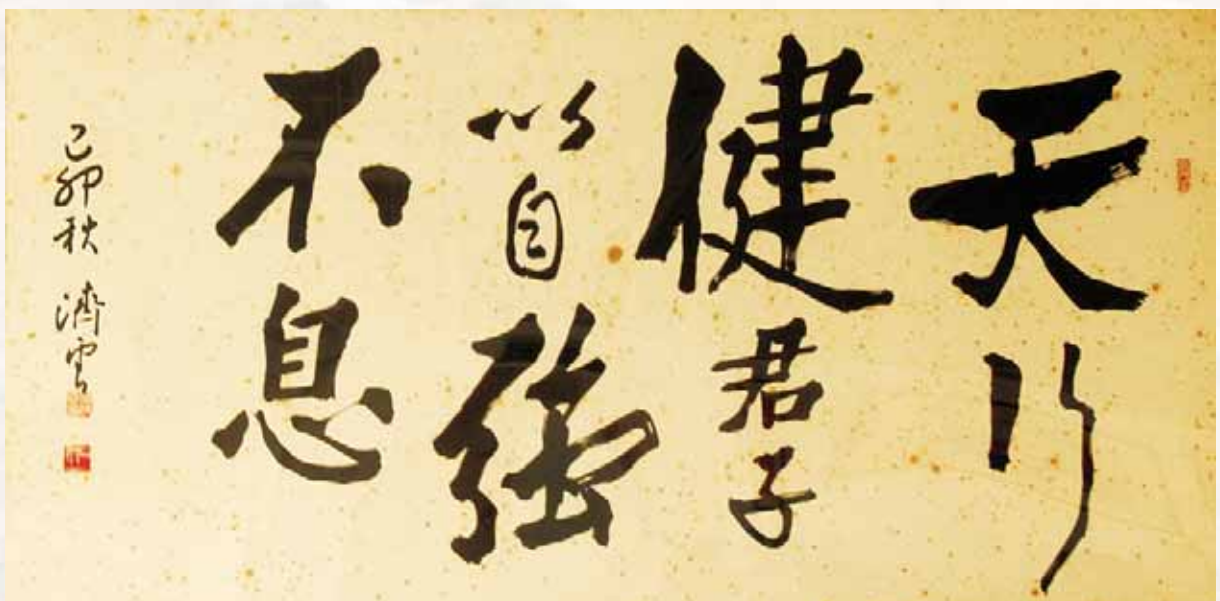 天行
健君子
以自强
不息
己卯秋 濟雲